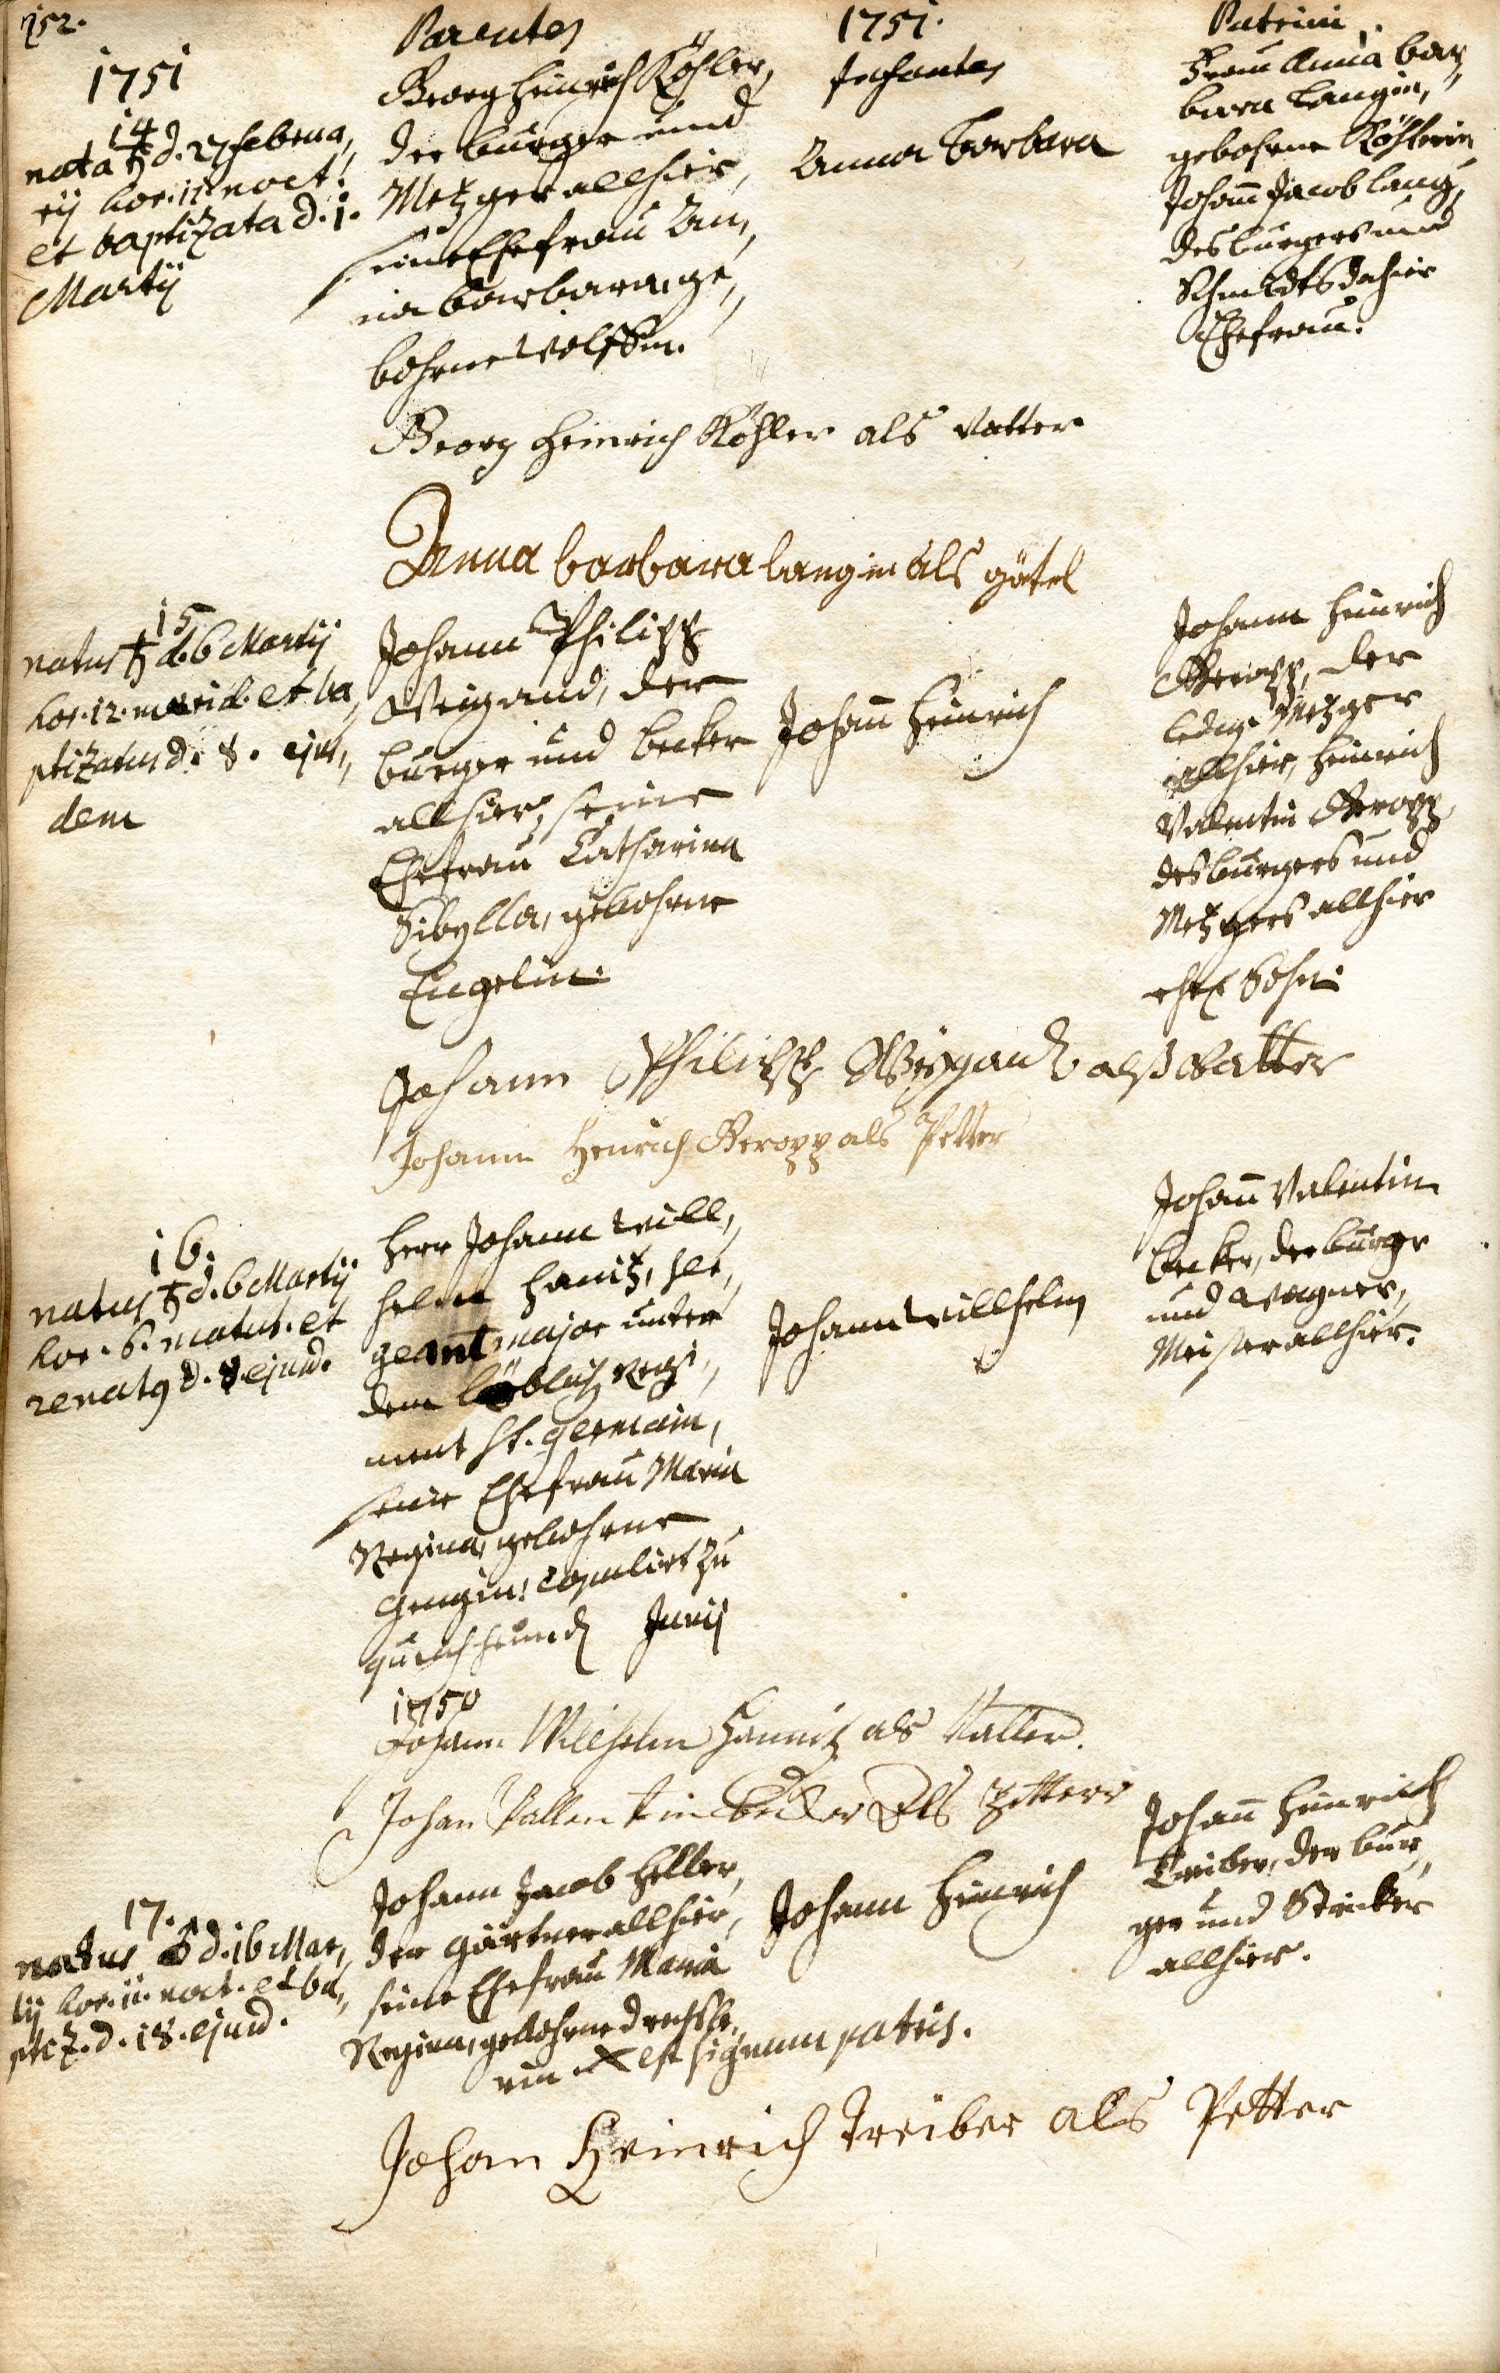 152.
1751
Parentes
1751.
Infantes
Patrini
14
nata ♄ d. 27 februa,,
rij hor. 11. noct.
et baptizata d. 1.
Martij
Georg Heinrich Köhler,
der burger und
Metzger allhier,
seine Ehefrau An,,
na barbara, ge,,
bohrne Wölffin.
Anna barbara
Frau Anna bar,,
bara Langin,
gebohrne Köhlerin
Johann Jacob Lang,
des burgers und
Schmidts dahier
Ehefrau.
Georg Heinrich Köhler als Vatter
Anna barbara langin als götel
15
natus ♄ d. 6 Martij
hor. 12. merid. et ba,,
ptizatus d. 8. ejus,,
dem
Johann Philipp
Weigand, der
burger und becker
allhier, seine
Ehefrau Catharina
Sibylla, gebohrne
Engelin.
Johann Heinrich
Johann Heinrich
Gropp, der
ledige Metzger
allhier, Heinrich
Valentin Gropp,
des burgers und
Metzgers allhier
ehel. Sohn.
Johann Philipp Weygand alß Vatter
Johann Henrich Gropp als Petter
16.
natus ♄ d. 6 Martij
hor. 6. matut. et
renatus d. 8 ejusd.
Herr Johann Will,,
helm Hanitz, Ser,,
geant major unter
dem löblich Regi,,
ment St. Germain,
seine Ehefrau Maria
Regina, gebohrne
Gengin. Copulirt zu
Junij
1750
Johann Willhelm
Johann Valentin
Becker, der burger
und Wagner,,
Meister allhier.
Johann Wilhelm Hannitz als Vatter.
Johan Vallentin Becker Als Petterr
17.
natus d. 16 Mar,,
tij hor. 11. noct. et ba,,
ptiz. d. 18. ejusd.
Johann Jacob Heller,
der Gärtner allhier,
seine Ehefrau Maria
Regina, gebohrne Drechsle,,
rin. X est signum patris.
Johann Heinrich
Johann Heinrich
Treiber, der bur,,
ger und Stricker
allhier.
Johan Heinrich Treiber als Petter